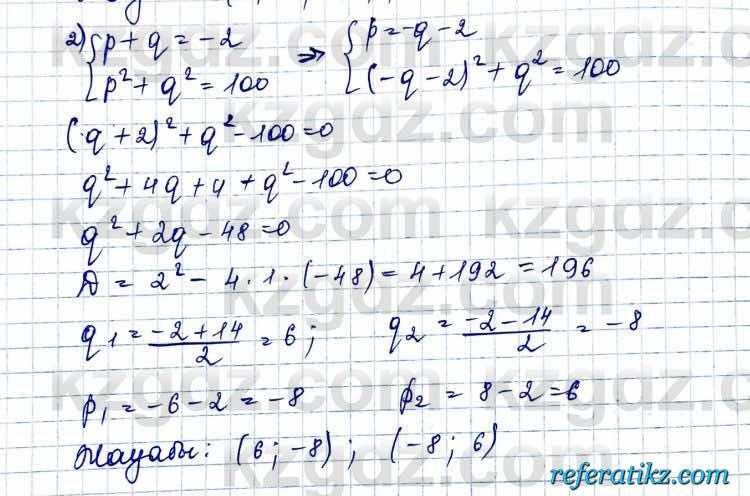 2) { p + q = -2 ⇒ { p = -q - 2
{ p² + q² = 100 { (-q - 2)² + q² = 100
(q + 2)² + q² - 100 = 0
q² + 4q + 4 + q² - 100 = 0
q² + 2q - 48 = 0
D = 2² - 4 · 1 · (-48) = 4 + 192 = 196
q₁ = (-2 + 14)/2 = 6 ; q₂ = (-2 - 14)/2 = -8
p₁ = -6 - 2 = -8 p₂ = 8 - 2 = 6
Жауабы: (6; -8) ; (-8; 6)
kzgdz.com
referatikz.com